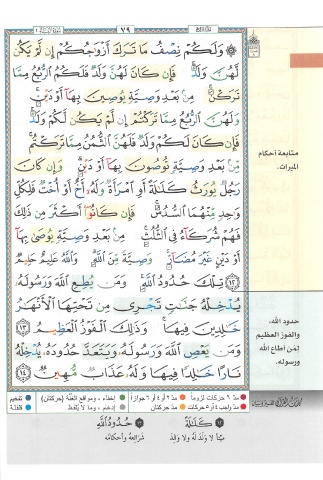 ٧٩
۞ وَلَكُمْ نِصْفُ مَا تَرَكَ أَزْوَٰجُكُمْ إِن لَّمْ يَكُن
لَّهُنَّ وَلَدٌ ۚ فَإِن كَانَ لَهُنَّ وَلَدٌ فَلَكُمُ ٱلرُّبُعُ مِمَّا
تَرَكْنَ ۚ مِنۢ بَعْدِ وَصِيَّةٍ يُوصِينَ بِهَآ أَوْ دَيْنٍ ۚ
وَلَهُنَّ ٱلرُّبُعُ مِمَّا تَرَكْتُمْ إِن لَّمْ يَكُن لَّكُمْ وَلَدٌ ۚ
فَإِن كَانَ لَكُمْ وَلَدٌ فَلَهُنَّ ٱلثُّمُنُ مِمَّا تَرَكْتُم ۚ
مِّنۢ بَعْدِ وَصِيَّةٍ تُوصُونَ بِهَآ أَوْ دَيْنٍ ۗ وَإِن كَانَ
رَجُلٌ يُورَثُ كَلَٰلَةً أَوِ ٱمْرَأَةٌ وَلَهُۥٓ أَخٌ أَوْ أُخْتٌ فَلِكُلِّ
وَٰحِدٍ مِّنْهُمَا ٱلسُّدُسُ ۚ فَإِن كَانُوٓا۟ أَكْثَرَ مِن ذَٰلِكَ
فَهُمْ شُرَكَآءُ فِى ٱلثُّلُثِ ۚ مِنۢ بَعْدِ وَصِيَّةٍ يُوصَىٰ بِهَآ
أَوْ دَيْنٍ غَيْرَ مُضَآرٍّ ۚ وَصِيَّةً مِّنَ ٱللَّهِ ۗ وَٱللَّهُ عَلِيمٌ حَلِيمٌ
١٢ تِلْكَ حُدُودُ ٱللَّهِ ۚ وَمَن يُطِعِ ٱللَّهَ وَرَسُولَهُۥ
يُدْخِلْهُ جَنَّٰتٍ تَجْرِى مِن تَحْتِهَا ٱلْأَنْهَٰرُ
خَٰلِدِينَ فِيهَا ۚ وَذَٰلِكَ ٱلْفَوْزُ ٱلْعَظِيمُ ١٣
وَمَن يَعْصِ ٱللَّهَ وَرَسُولَهُۥ وَيَتَعَدَّ حُدُودَهُۥ يُدْخِلْهُ
نَارًا خَٰلِدًا فِيهَا وَلَهُۥ عَذَابٌ مُّهِينٌ ١٤
متابعة أحكام
الميراث.
حدود الله،
والفوز العظيم
لمن أطاع الله
ورسوله.
مدّ ٦ حركات لزوماً مدّ ٢ أو ٤ أو ٦ جوازاً إخفاء، ومواقع الغنّة (حركتان) تفخيم
مدّ واجب ٤ أو ٥ حركات مدّ حركتان إدغام، وما لا يُلفظ قلقلة
١٢ كَلَالَةً
ميتاً لا ولد له ولا والد
١٣ حُدُودُ اللَّهِ
شرائعه وأحكامه